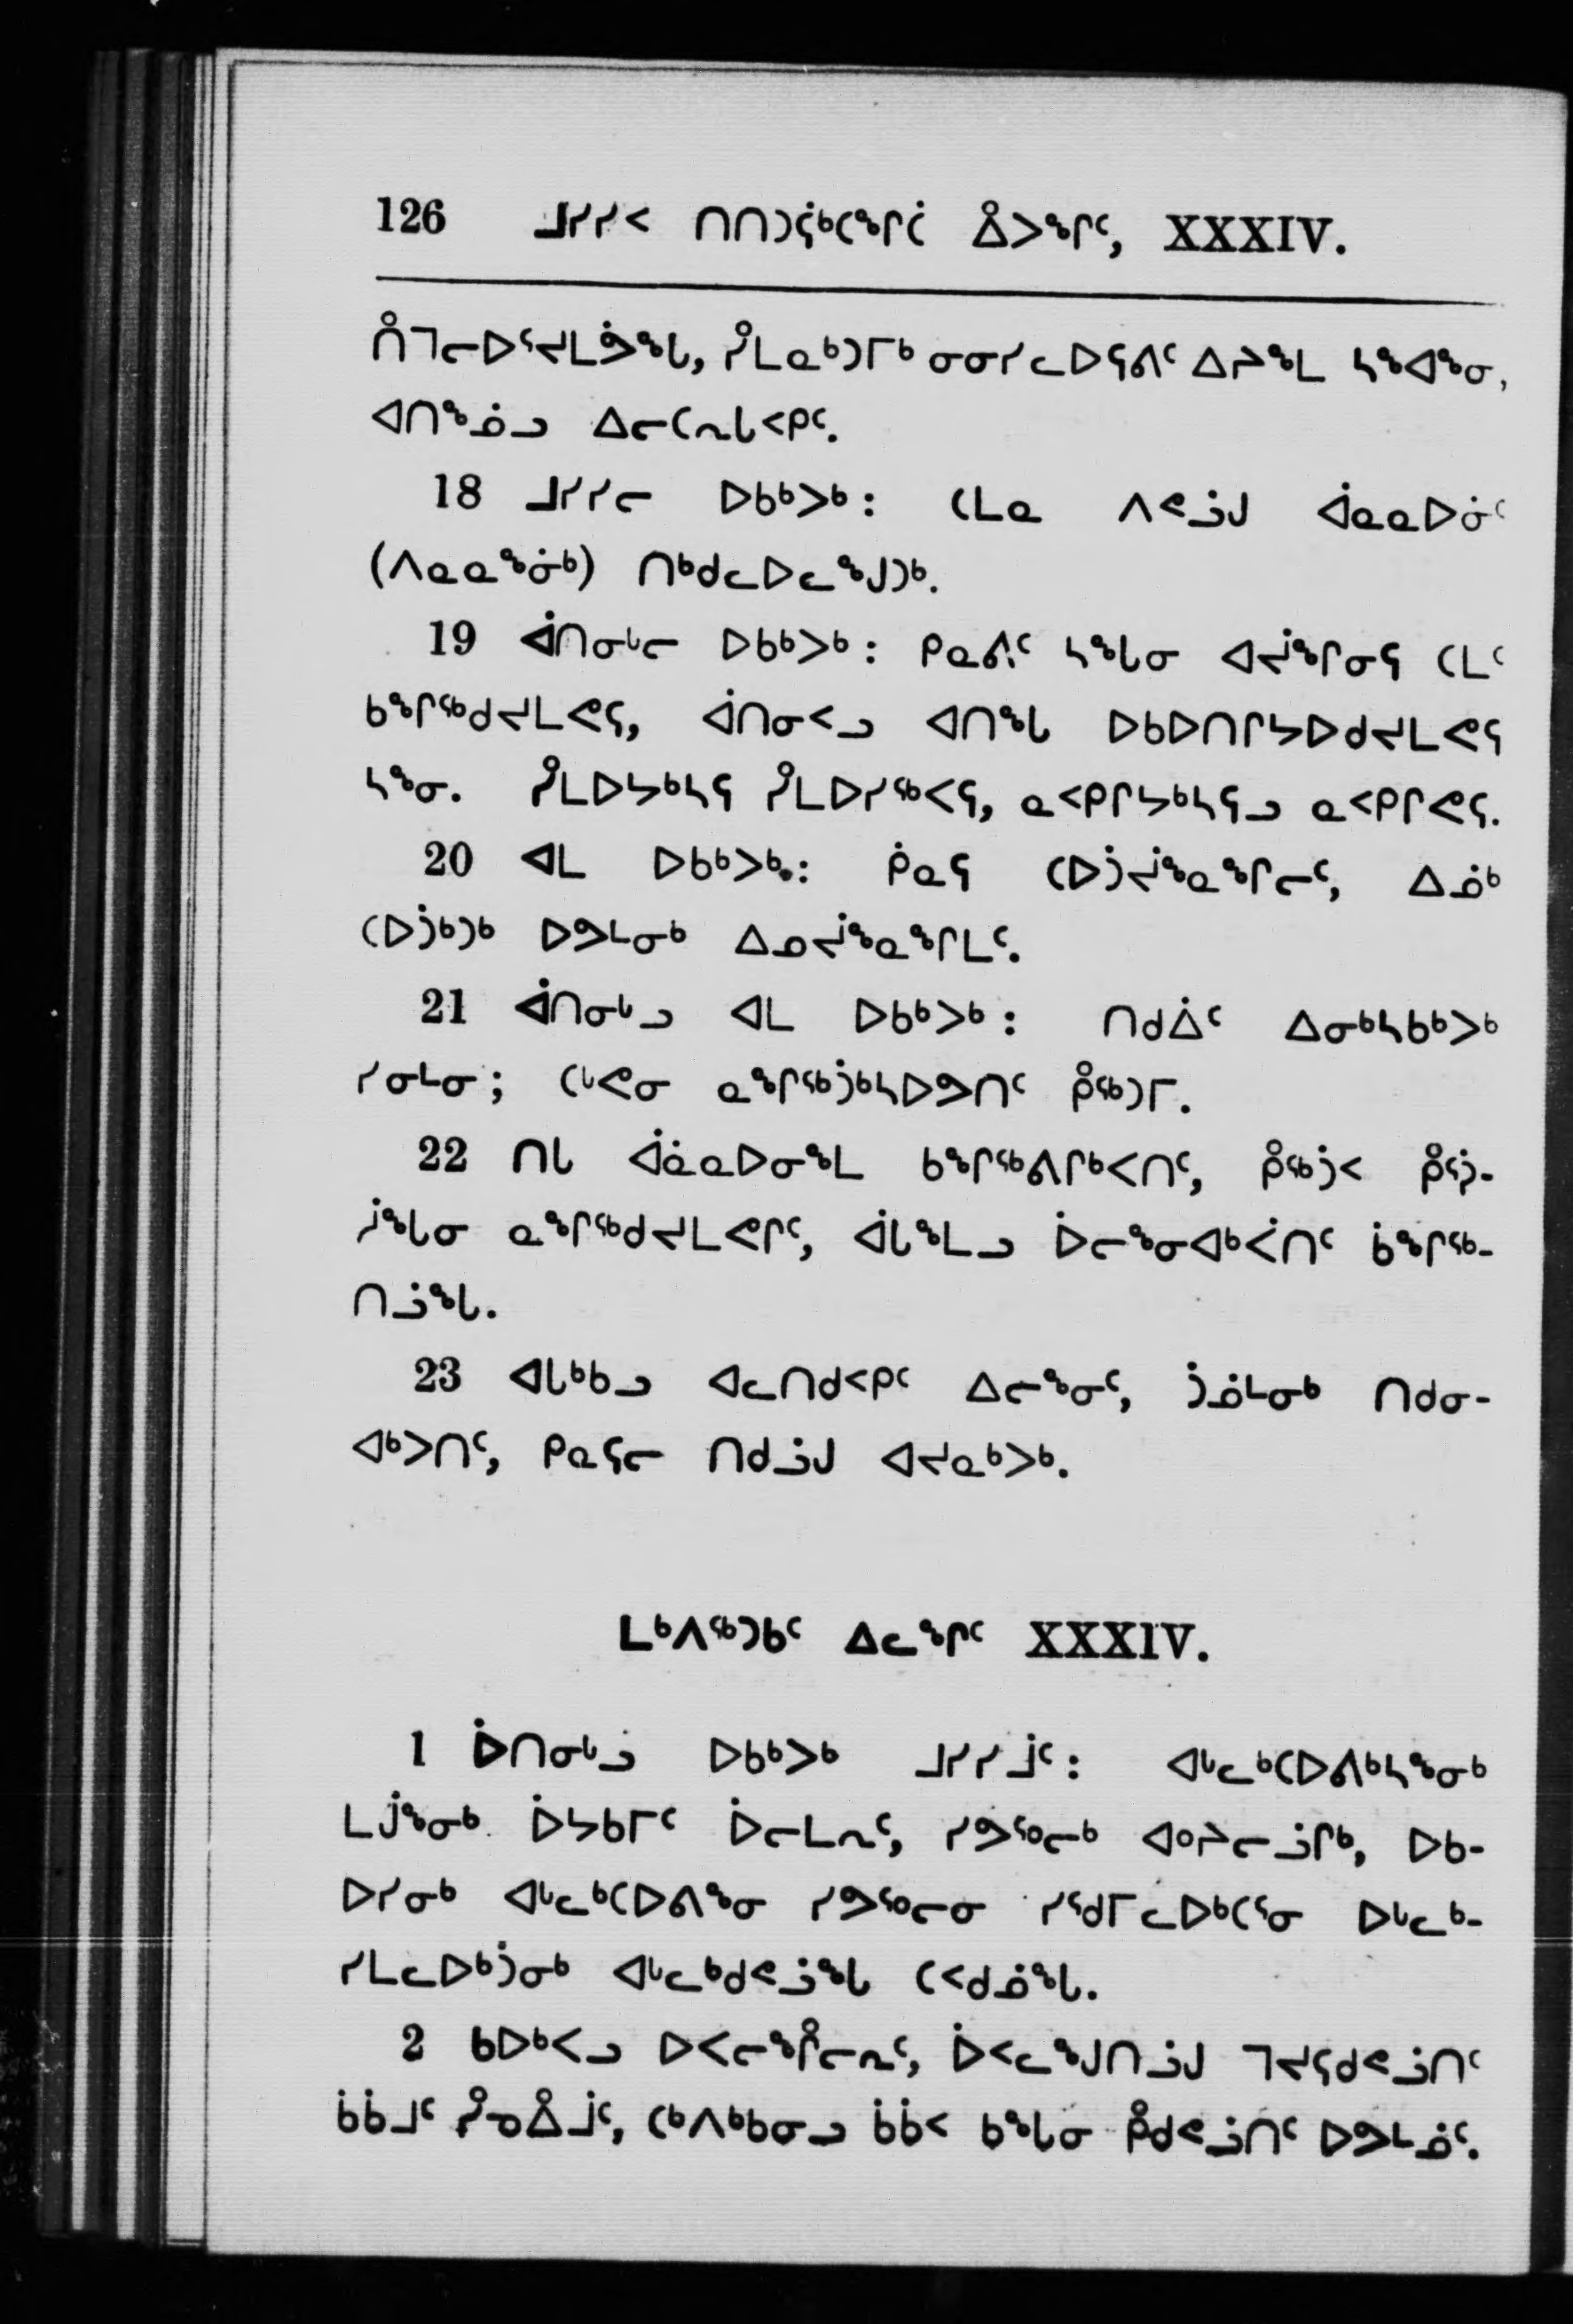 126 ᒧᓯᓯᑉ ᑎᑎᑐᕌᒃᑕᖕᒋᑖ ᐄᐳᖕᒋᑦ, XXXIV.
ᑏᒣᓕᐅᕐᔪᒪᕘᖓ, ᓰᒪᓇᒃᑐᒥᒃ ᓂᓂᓯᓚᐅᕋᕕᑦ ᐃᔨᖕᒪ ᓴᖕᐊᖕᓂ,
ᐊᑎᖕᓅᓗ ᐃᓕᑕᕆᒐᑉᑭᑦ.
18 ᒧᓯᓯᓕ ᐅᑲᒃᐳᒃ: ᑕᒪᓇ ᐱᕙᓘᒍ ᐋᓇᓇᐅᓃᑦ
(ᐱᓇᓇᖕᓃᒃ) ᑎᒃᑯᓚᐅᓚᖕᒍᑐᒃ.
19 ᐋᑎᓂᒡᓕ ᐅᑲᒃᐳᒃ: ᑭᓇᕕᑦ ᓴᖓᓂ ᐊᔫᖕᒋᓂᕋ ᑕᒪᑦ
ᑲᖕᒋᖅᑯᔪᒪᕙᕋ, ᐋᑎᓂᑉᓗ ᐊᑎᖓ ᐅᑲᐅᑎᒋᔭᐅᑯᔪᒪᕙᕋ
ᓴᖕᓂ. ᓰᒪᐅᔭᒃᓴᕋ ᓰᒪᐅᓯᖅᐸᕋ, ᓇᑉᑭᒋᔭᒃᓴᕋᓗ ᓇᑉᑭᒋᕙᕋ.
20 ᐊᒪ ᐅᑲᒃᐳᒃ: ᑮᓇᕋ ᑕᐅᑑᔫᖕᓇᖕᒋᓕᑦ, ᐃᓅᒃ
ᑕᐅᑑᒃᑐᒃ ᐅᕗᒻᓂᒃ ᐃᓄᔫᖕᓇᖕᒋᒪᑦ.
21 ᐋᑎᓂᒡᓗ ᐊᒪ ᐅᑲᒃᐳᒃ: ᑎᑯᐄᑦ ᐃᓂᒃᓴᑲᒃᐳᒃ
ᓯᓂᒻᓂ; ᑕᒡᕙᓂ ᓇᖕᒋᖅᑑᒃᓴᐅᕗᑎᑦ ᑮᖅᑐᒥ.
22 ᑎᒐ ᐋᓈᓇᐅᓂᖕᒪ ᑲᖕᒋᖅᕕᒋᒃᐸᑎᑦ, ᑮᖅᑑᑉ ᑮᕐᔩ-
ᔫᖓᓂ ᓇᖕᒋᖅᑯᔪᒪᕙᒋᑦ, ᐋᒐᖕᒪᓗ ᐆᓕᖕᓂᐊᒃᐹᑎᑦ ᑳᖕᒋᖅ-
ᑎᓘᖓ.
23 ᐊᒐᒃᑲᓗ ᐊᓚᑎᑯᑉᑭᑦ ᐃᓕᖕᓂᑦ, ᑑᓅᒻᓂᒃ ᑎᑯᓂ-
ᐊᒃᐳᑎᑦ, ᑭᓇᕋᓕ ᑎᑯᓘᒍ ᐊᔪᓇᒃᐳᒃ.
ᒪᒃᐱᖅᑐᑲᑦ ᐃᓚᖕᒋᑦ XXXIV.
1 ᐆᑎᓂᒡᓘ ᐅᑲᒃᐳᒃ ᒧᓯᓯᒨᑦ: ᐊᒡᓚᒃᑕᐅᕕᒃᓴᖕᓂᒃ
ᒪᒎᖕᓂᒃ ᐆᔭᑲᒥᑦ ᐆᓕᒪᕆᑦ, ᓯᕗᕐᓕᒃ ᐊᔾᔨᓕᓘᒋᒃ, ᐅᑲ-
ᐅᓯᓂᒃ ᐊᒡᓚᒃᑕᐅᕕᖕᓂ ᓯᕗᕐᓕᓂ ᓯᕐᑯᒥᓚᐅᒃᑕᕐᓂ ᐅᒡᓚᒃ-
ᓯᒪᓚᐅᒃᑑᓂᒃ ᐊᒡᓚᒃᑯᕙᓘᖓ ᑕᑉᑯᓅᖓ.
2 ᑲᐅᒃᐸᓗ ᐅᐸᓕᖕᒌᓕᕆᑦ, ᐆᑉᓚᖕᒍᑎᓘᒍ ᒣᔪᕋᑯᕙᓘᑎᑦ
ᑳᑳᒧᑦ ᓰᓄᐄᒨᑦ, ᑕᒃᐱᒃᑲᓂᓗ ᑳᑳᑉ ᑲᖓᓂ ᑮᑯᕙᓘᑎᑦ ᐅᕗᒻᓅᑦ.